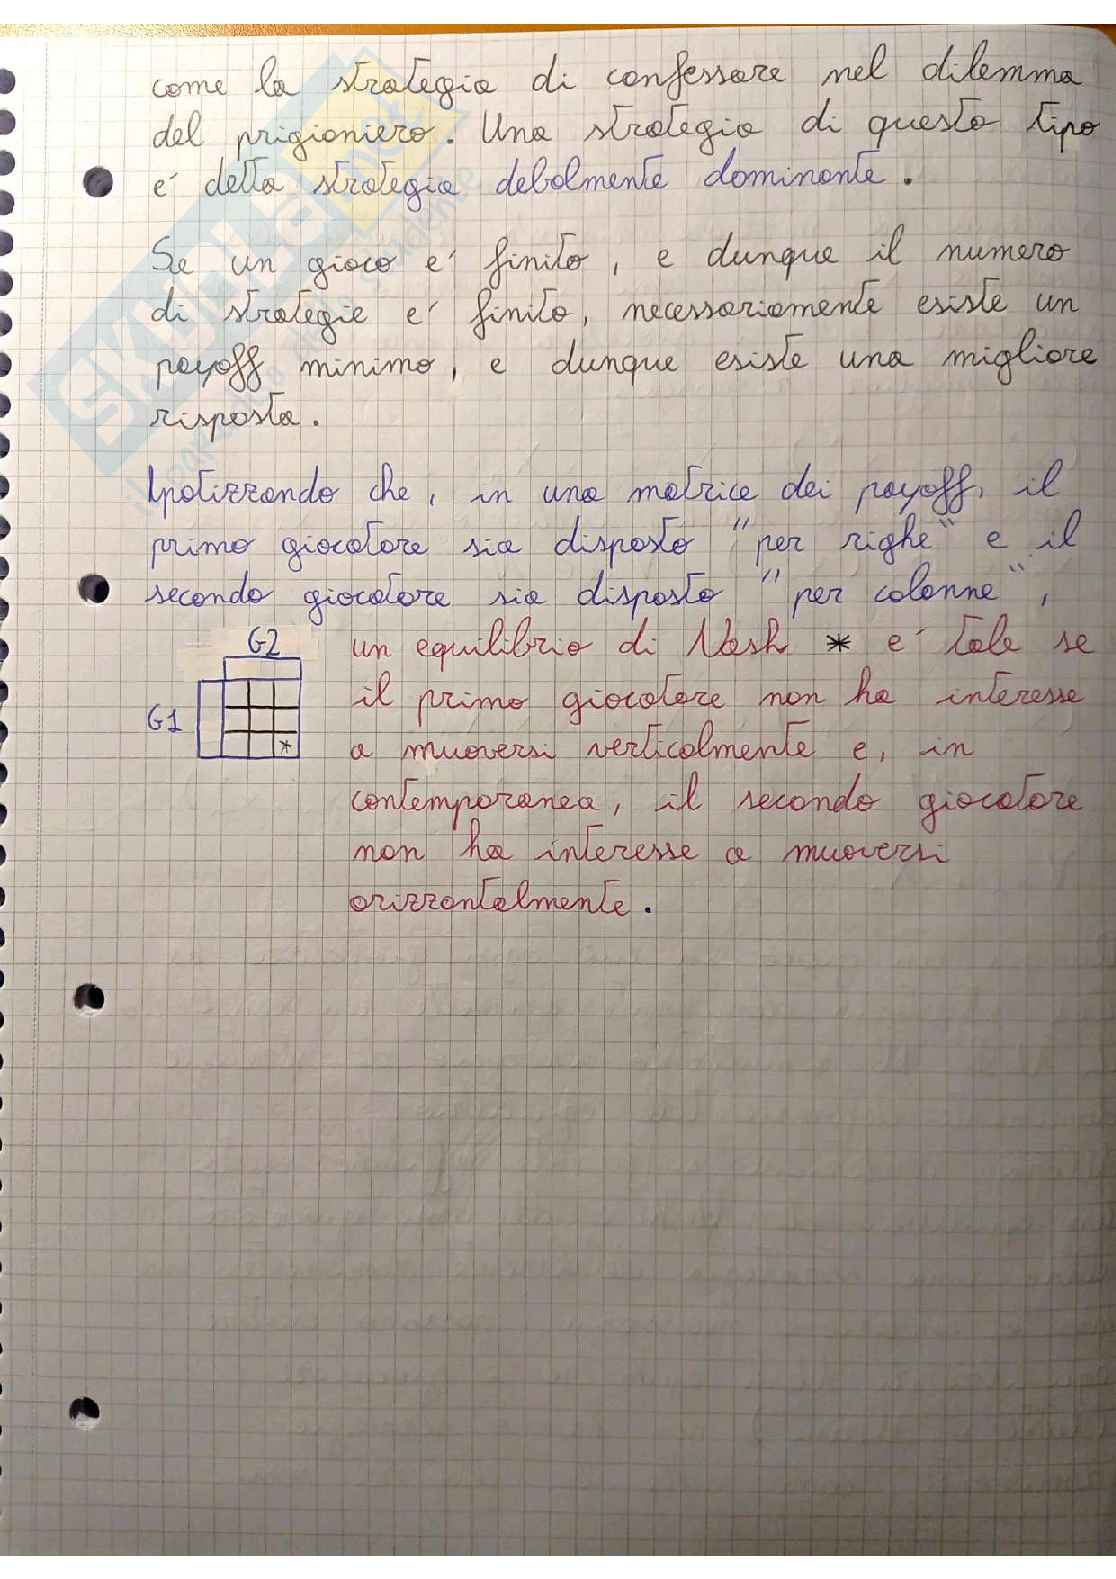 come la strategia di confessare nel dilemma
del prigioniero. Una strategia di questo tipo
e' detta strategia debolmente dominante.
Se un gioco e' finito, e dunque il numero
di strategie e' finito, necessariamente esiste un
payoff minimo, e dunque esiste una migliore
risposta.
Ipotizzando che, in una matrice dei payoff, il
primo giocatore sia disposto "per righe" e il
secondo giocatore sia disposto "per colonne",
G2
G1
*
un equilibrio di Nash * e' tale se
il primo giocatore non ha interesse
a muoversi verticalmente e, in
contemporanea, il secondo giocatore
non ha interesse a muoversi
orizzontalmente.